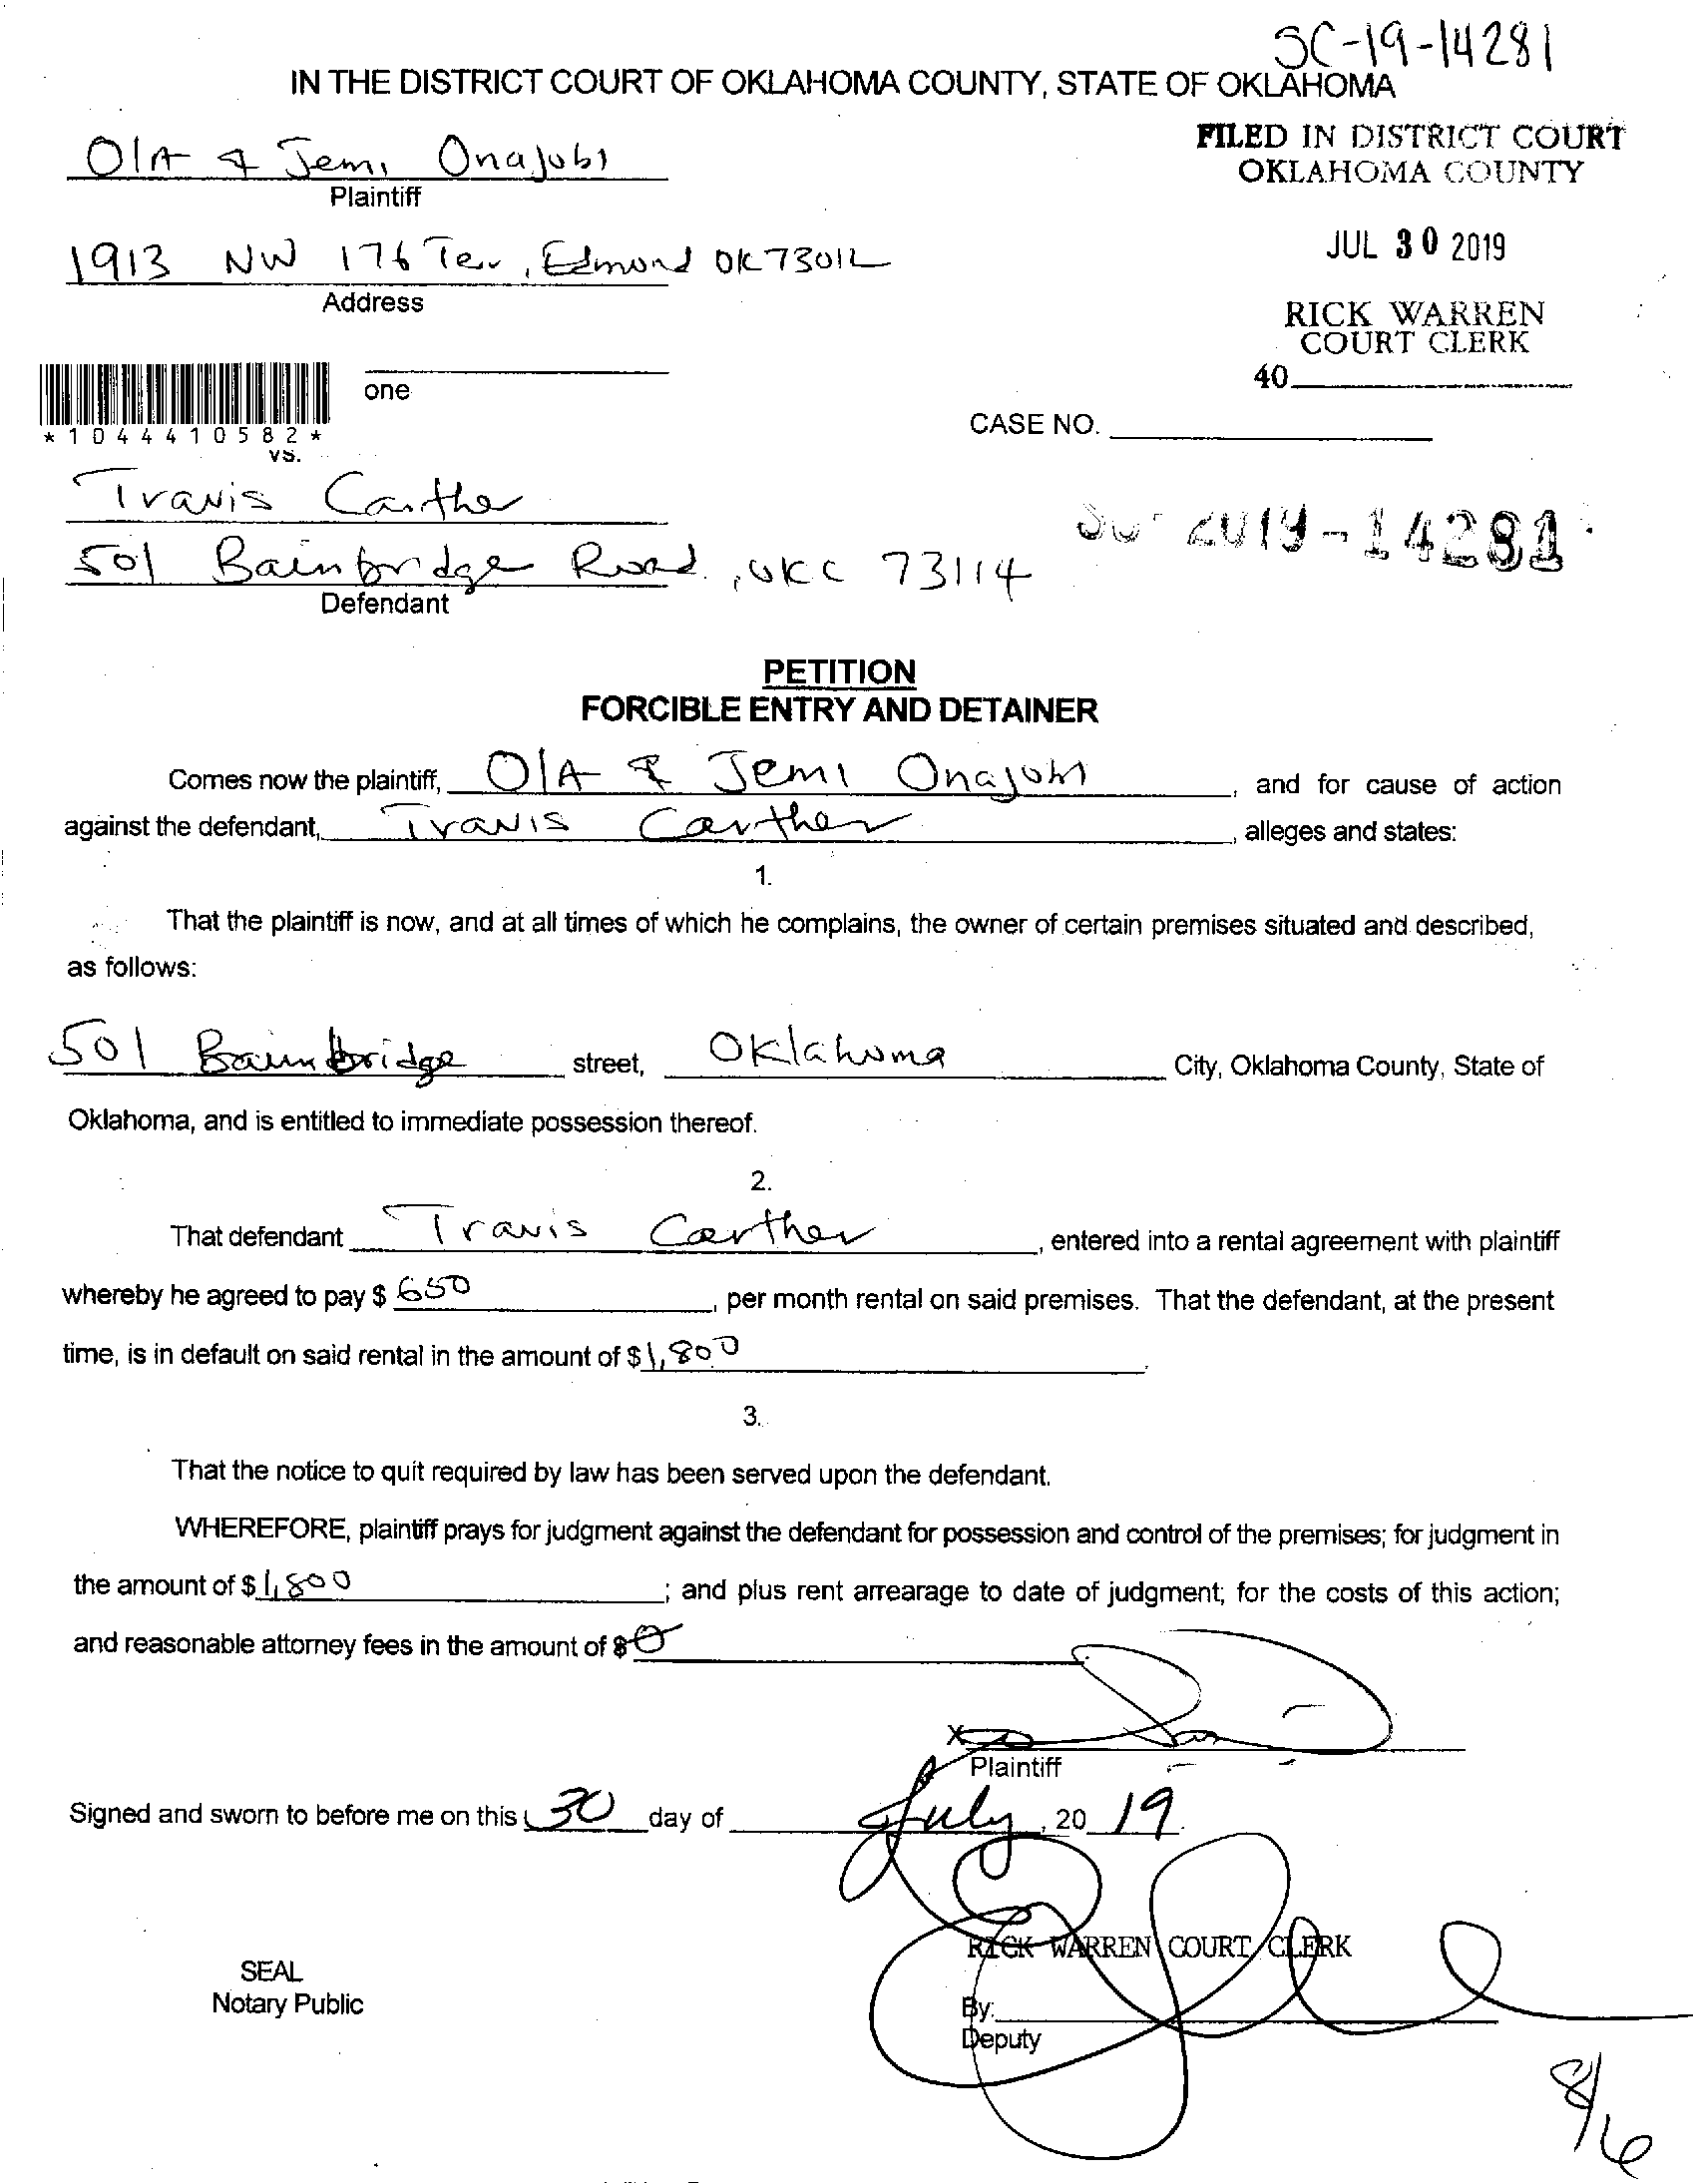 SC-19-14281
IN THE DISTRICT COURT OF OKLAHOMA COUNTY, STATE OF OKLAHOMA
OlA & Jemi Onajobi
Plaintiff
FILED IN DISTRICT COURT
OKLAHOMA COUNTY
1913 NW 176 Ter, Edmond OK 73012
Address
JUL 30 2019
RICK WARREN
COURT CLERK
40
one
*1044410582*
CASE NO.
vs.
Travis Carther
2019-14281
501 Bainbridge Road, OKC 73114
Defendant
PETITION
FORCIBLE ENTRY AND DETAINER
Comes now the plaintiff, OlA & Jemi Onajobi, and for cause of action
against the defendant, Travis Carther, alleges and states:
1.
That the plaintiff is now, and at all times of which he complains, the owner of certain premises situated and described,
as follows:
501 Bainbridge street, Oklahoma City, Oklahoma County, State of
Oklahoma, and is entitled to immediate possession thereof.
2.
That defendant Travis Carther, entered into a rental agreement with plaintiff
whereby he agreed to pay $ 650, per month rental on said premises. That the defendant, at the present
time, is in default on said rental in the amount of $1,800.
3.
That the notice to quit required by law has been served upon the defendant.
WHEREFORE, plaintiff prays for judgment against the defendant for possession and control of the premises; for judgment in
the amount of $1,800; and plus rent arrearage to date of judgment; for the costs of this action;
and reasonable attorney fees in the amount of $0
X
Plaintiff
Signed and sworn to before me on this 30 day of July, 2019.
RICK WARREN COURT CLERK
SEAL
Notary Public
By:
Deputy
8/6